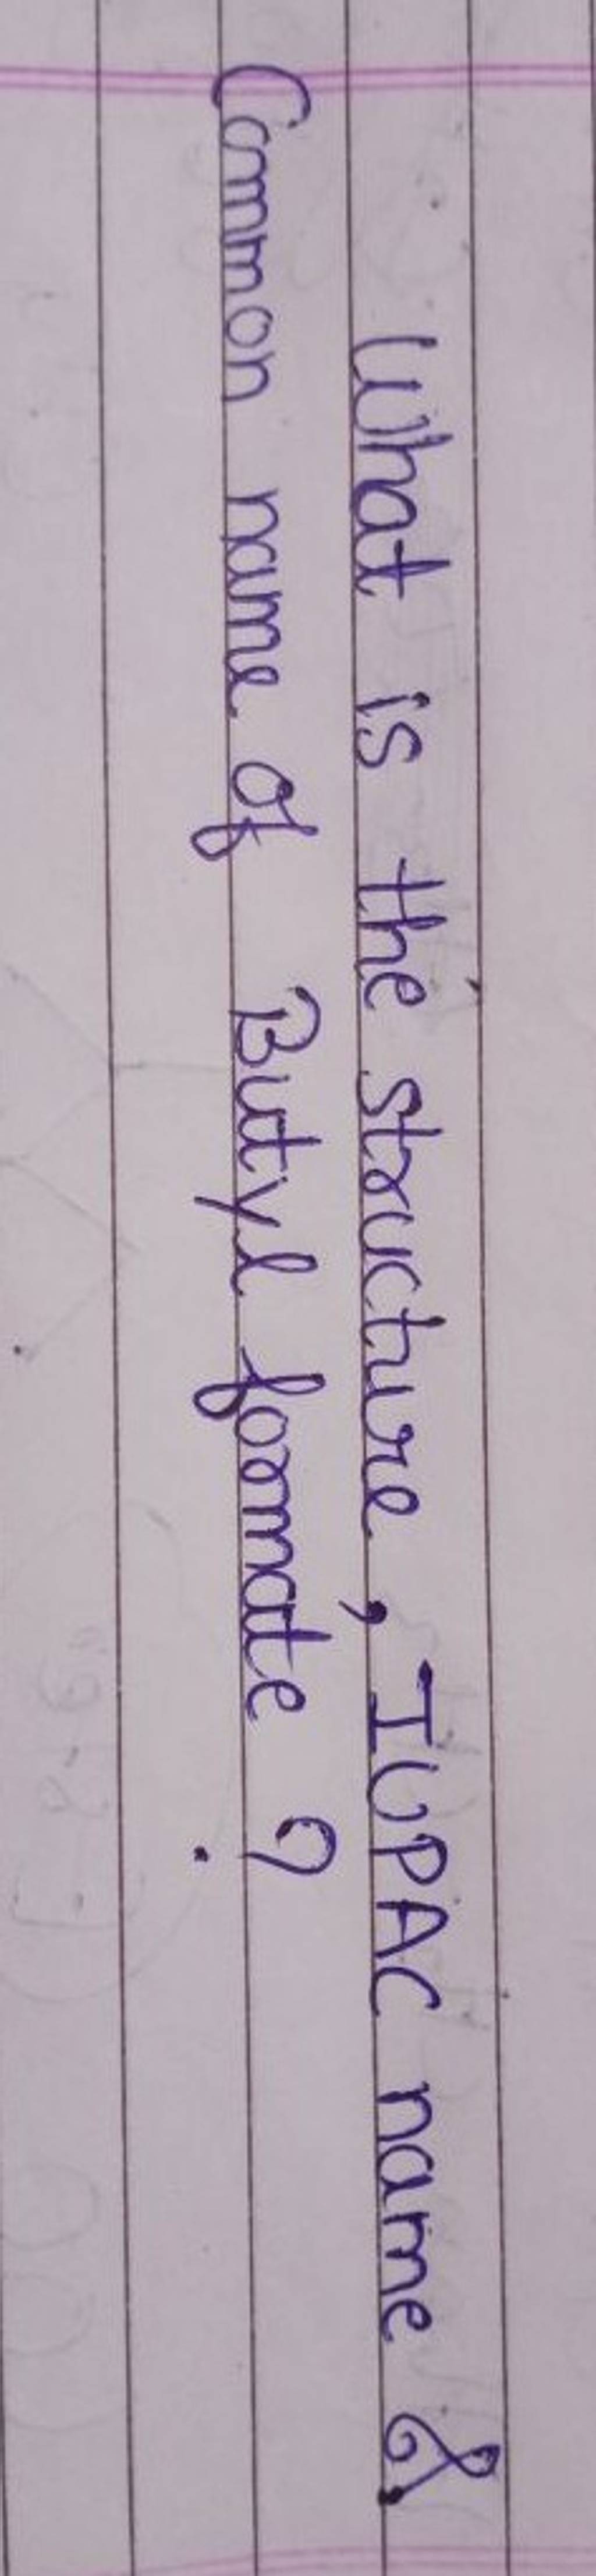 What is the structure, IUPAC name &
Common name of Butyl formate ?